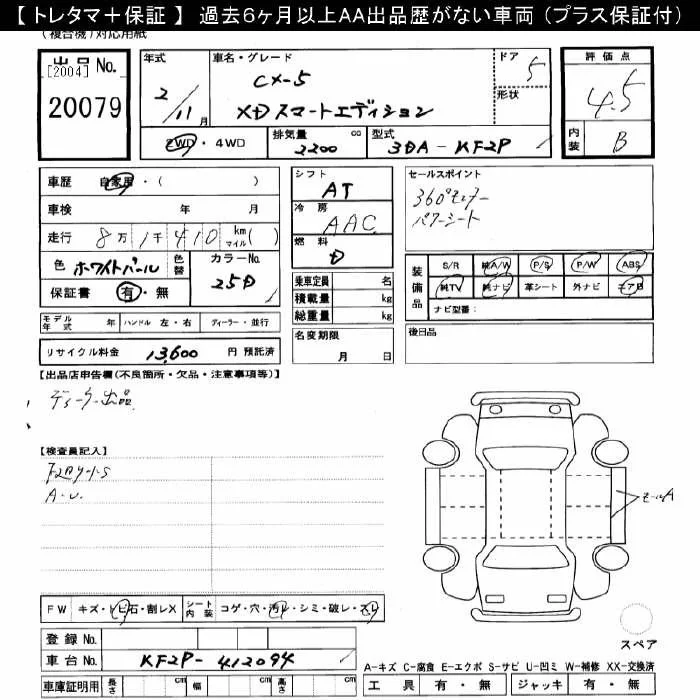 【 トレタマ＋保証 】 過去6ヶ月以上AA出品歴がない車両 （プラス保証付）
（複合機）対応用紙
出品 No.
[2004]
20079
年式
2/11月
車名・グレード
CX-5
XDスマートエディション
ドア
5
形状
評価点
4.5
内装
B
2WD・4WD
排気量 cc
2200
型式
3DA-KF2P
車歴 自家用・( )
車検 年 月
走行 8万1千410 km マイル( )
色 ホワイトパール 色替 カラーNo. 25D
保証書 有・無
シフト
AT
冷房
AAC
燃料
D
乗車定員 名
積載量 kg
総重量 kg
名変期限
月 日
セールスポイント
360°モニター
パワーシート
装備品
S/R 純A/W P/S P/W ABS
純TV 純ナビ 革シート 外ナビ エアB
ナビ型番:
後日品
モデル年式 年 ハンドル 左・右 ディーラー・並行
リサイクル料金 13,600 円 預託済
【出品店申告欄(不良箇所・欠品・注意事項等)】
ディーラー出品
【検査員記入】
A・U
モールA
FW キズ・トビ石・割レX シート内装 コゲ・穴・汚レ・シミ・破レ・スレ
登録 No.
車台 No. KF2P-412094
車庫証明用 長さ cm 幅 cm 高さ cm
スペア
A-キズ C-腐食 E-エクボ S-サビ U-凹ミ W-補修 XX-交換済
工具 有・無 ジャッキ 有・無